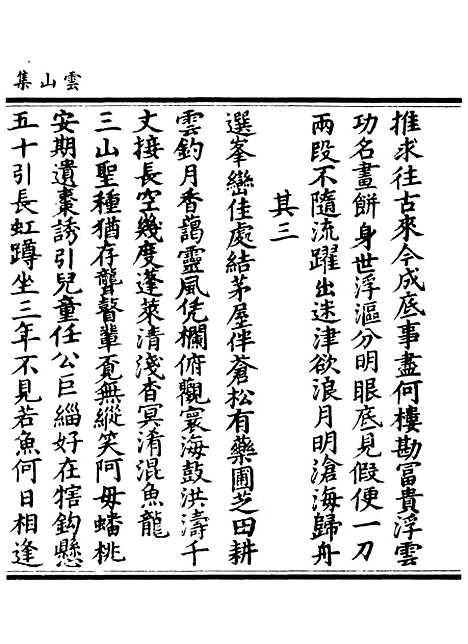 雲山集
推求往古來今成底事盡何樓勘冨貴浮雲
功名畫餅身世浮漚分明眼底見假便一刀
兩段不隨流躍出迷津欲浪月明滄海歸舟
其三
選峯巒佳處結茅屋伴蒼松有藥圃芝田耕
雲釣月香藹靈風凭欄俯觀寰海鼓洪濤千
丈接長空幾度蓬萊清淺杳冥淆混魚龍
三山聖種猶存聾瞽輩覔無縱笑阿母蟠桃
安期遺棗誘引兒童任公巨緇好在犗鈎懸
五十引長虹蹲坐三年不見若魚何日相逢